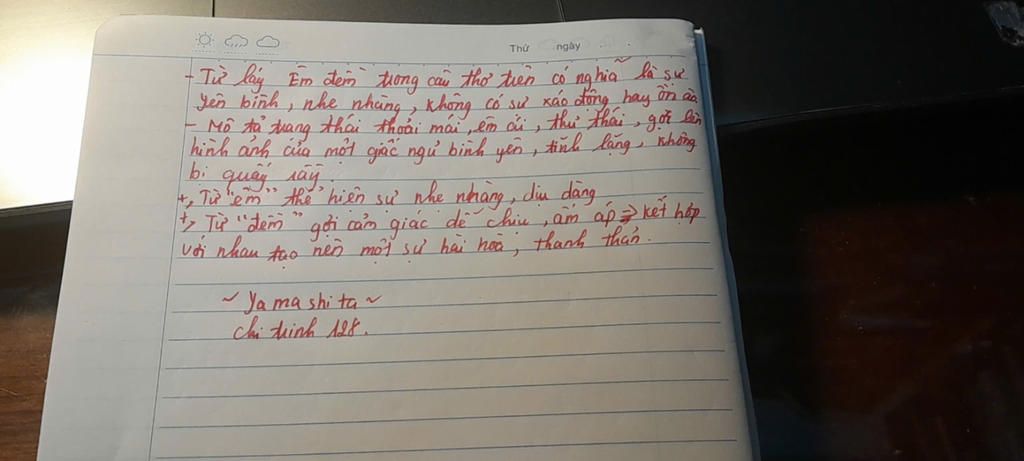 Thứ ngày
- Từ láy Êm đềm trong câu thơ trên có nghĩa là sự
yên bình, nhẹ nhàng, không có sự xáo động hay ồn ào.
- Mô tả trạng thái thoải mái, êm ái, thư thái, gợi lên
hình ảnh của một giấc ngủ bình yên, tĩnh lặng, không
bị quấy rầy.
+, Từ "êm" thể hiện sự nhẹ nhàng, dịu dàng
+, Từ "đềm" gợi cảm giác dễ chịu, ấm áp => kết hợp
với nhau tạo nên một sự hài hoà, thanh thản.
~ Yamashita ~
chi trinh 128.